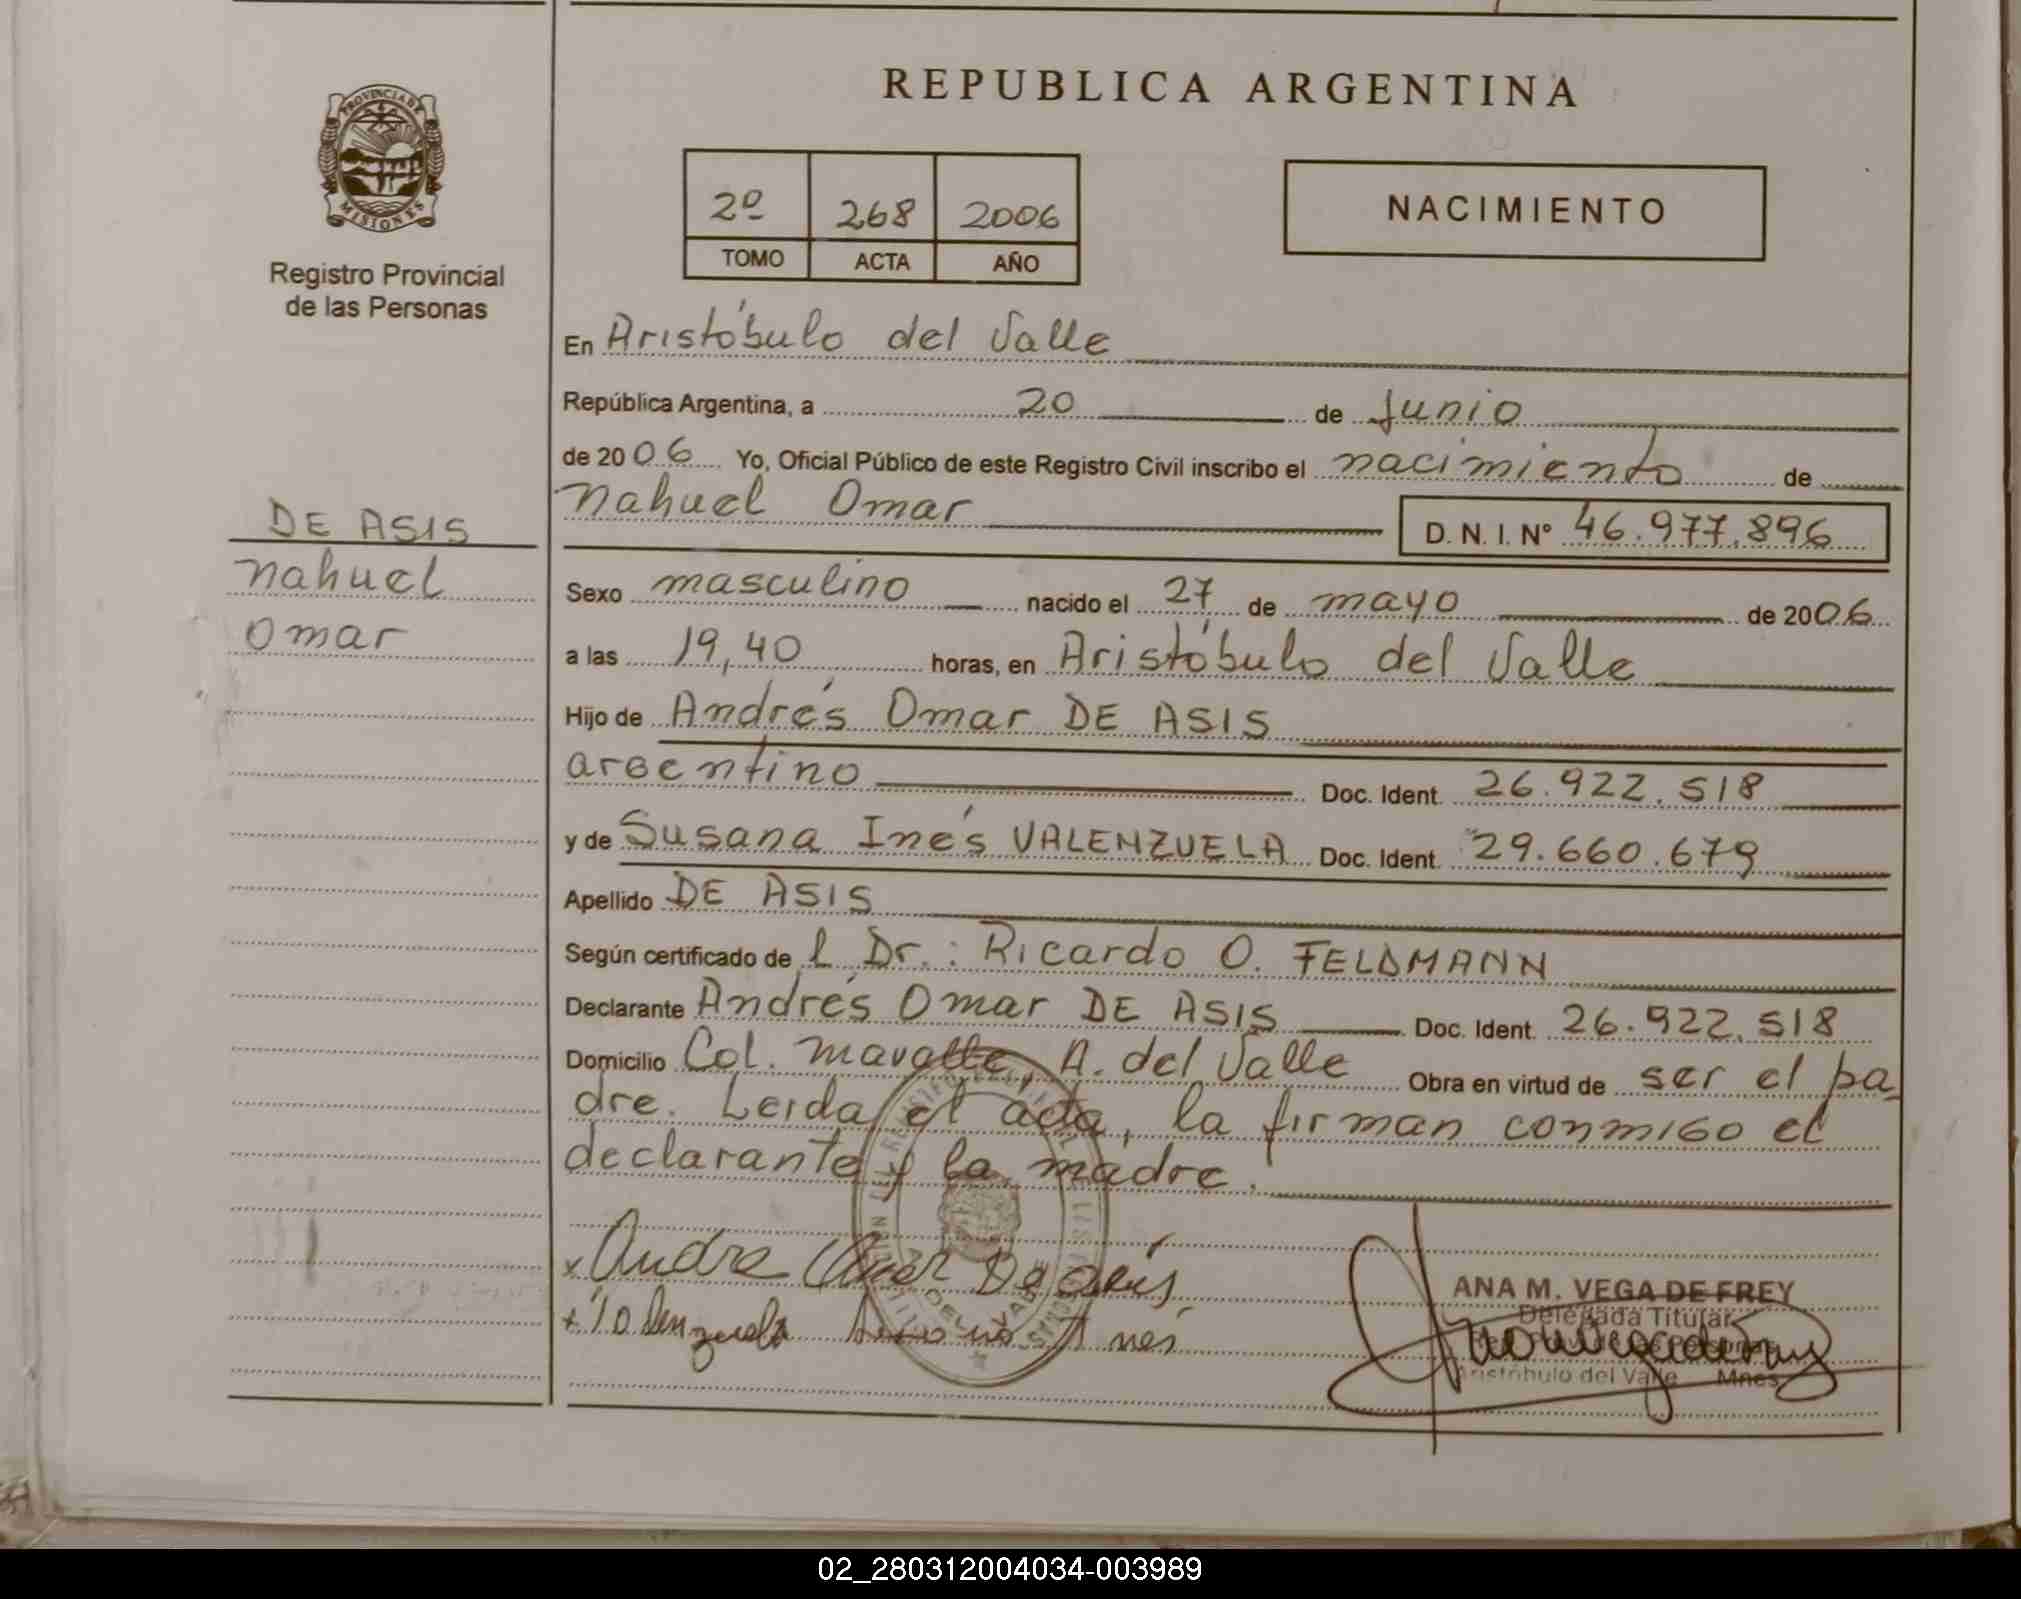 REPUBLICA ARGENTINA
PROVINCIA DE
MISIONES
Registro Provincial
de las Personas
2º 268 2006
TOMO ACTA AÑO
NACIMIENTO
DE ASIS
Nahuel
Omar
En Aristóbulo del Valle
República Argentina, a 20 de Junio
de 2006 Yo, Oficial Público de este Registro Civil inscribo el nacimiento de
Nahuel Omar D. N. I. Nº 46.977.896
Sexo masculino nacido el 27 de mayo de 2006
a las 19,40 horas, en Aristóbulo del Valle
Hijo de Andrés Omar DE ASIS
argentino Doc. Ident. 26.922.518
y de Susana Inés VALENZUELA Doc. Ident. 29.660.679
Apellido DE ASIS
Según certificado de l Dr.: Ricardo O. FELDMANN
Declarante Andrés Omar DE ASIS Doc. Ident. 26.922.518
Domicilio Col. A. del Valle Obra en virtud de ser el pa-
dre. Leida el acta, la firman conmigo el
declarante y la madre.
ANA M. VEGA DE FREY
Delegada Titular
Aristóbulo del Valle Mnes
02_280312004034-003989